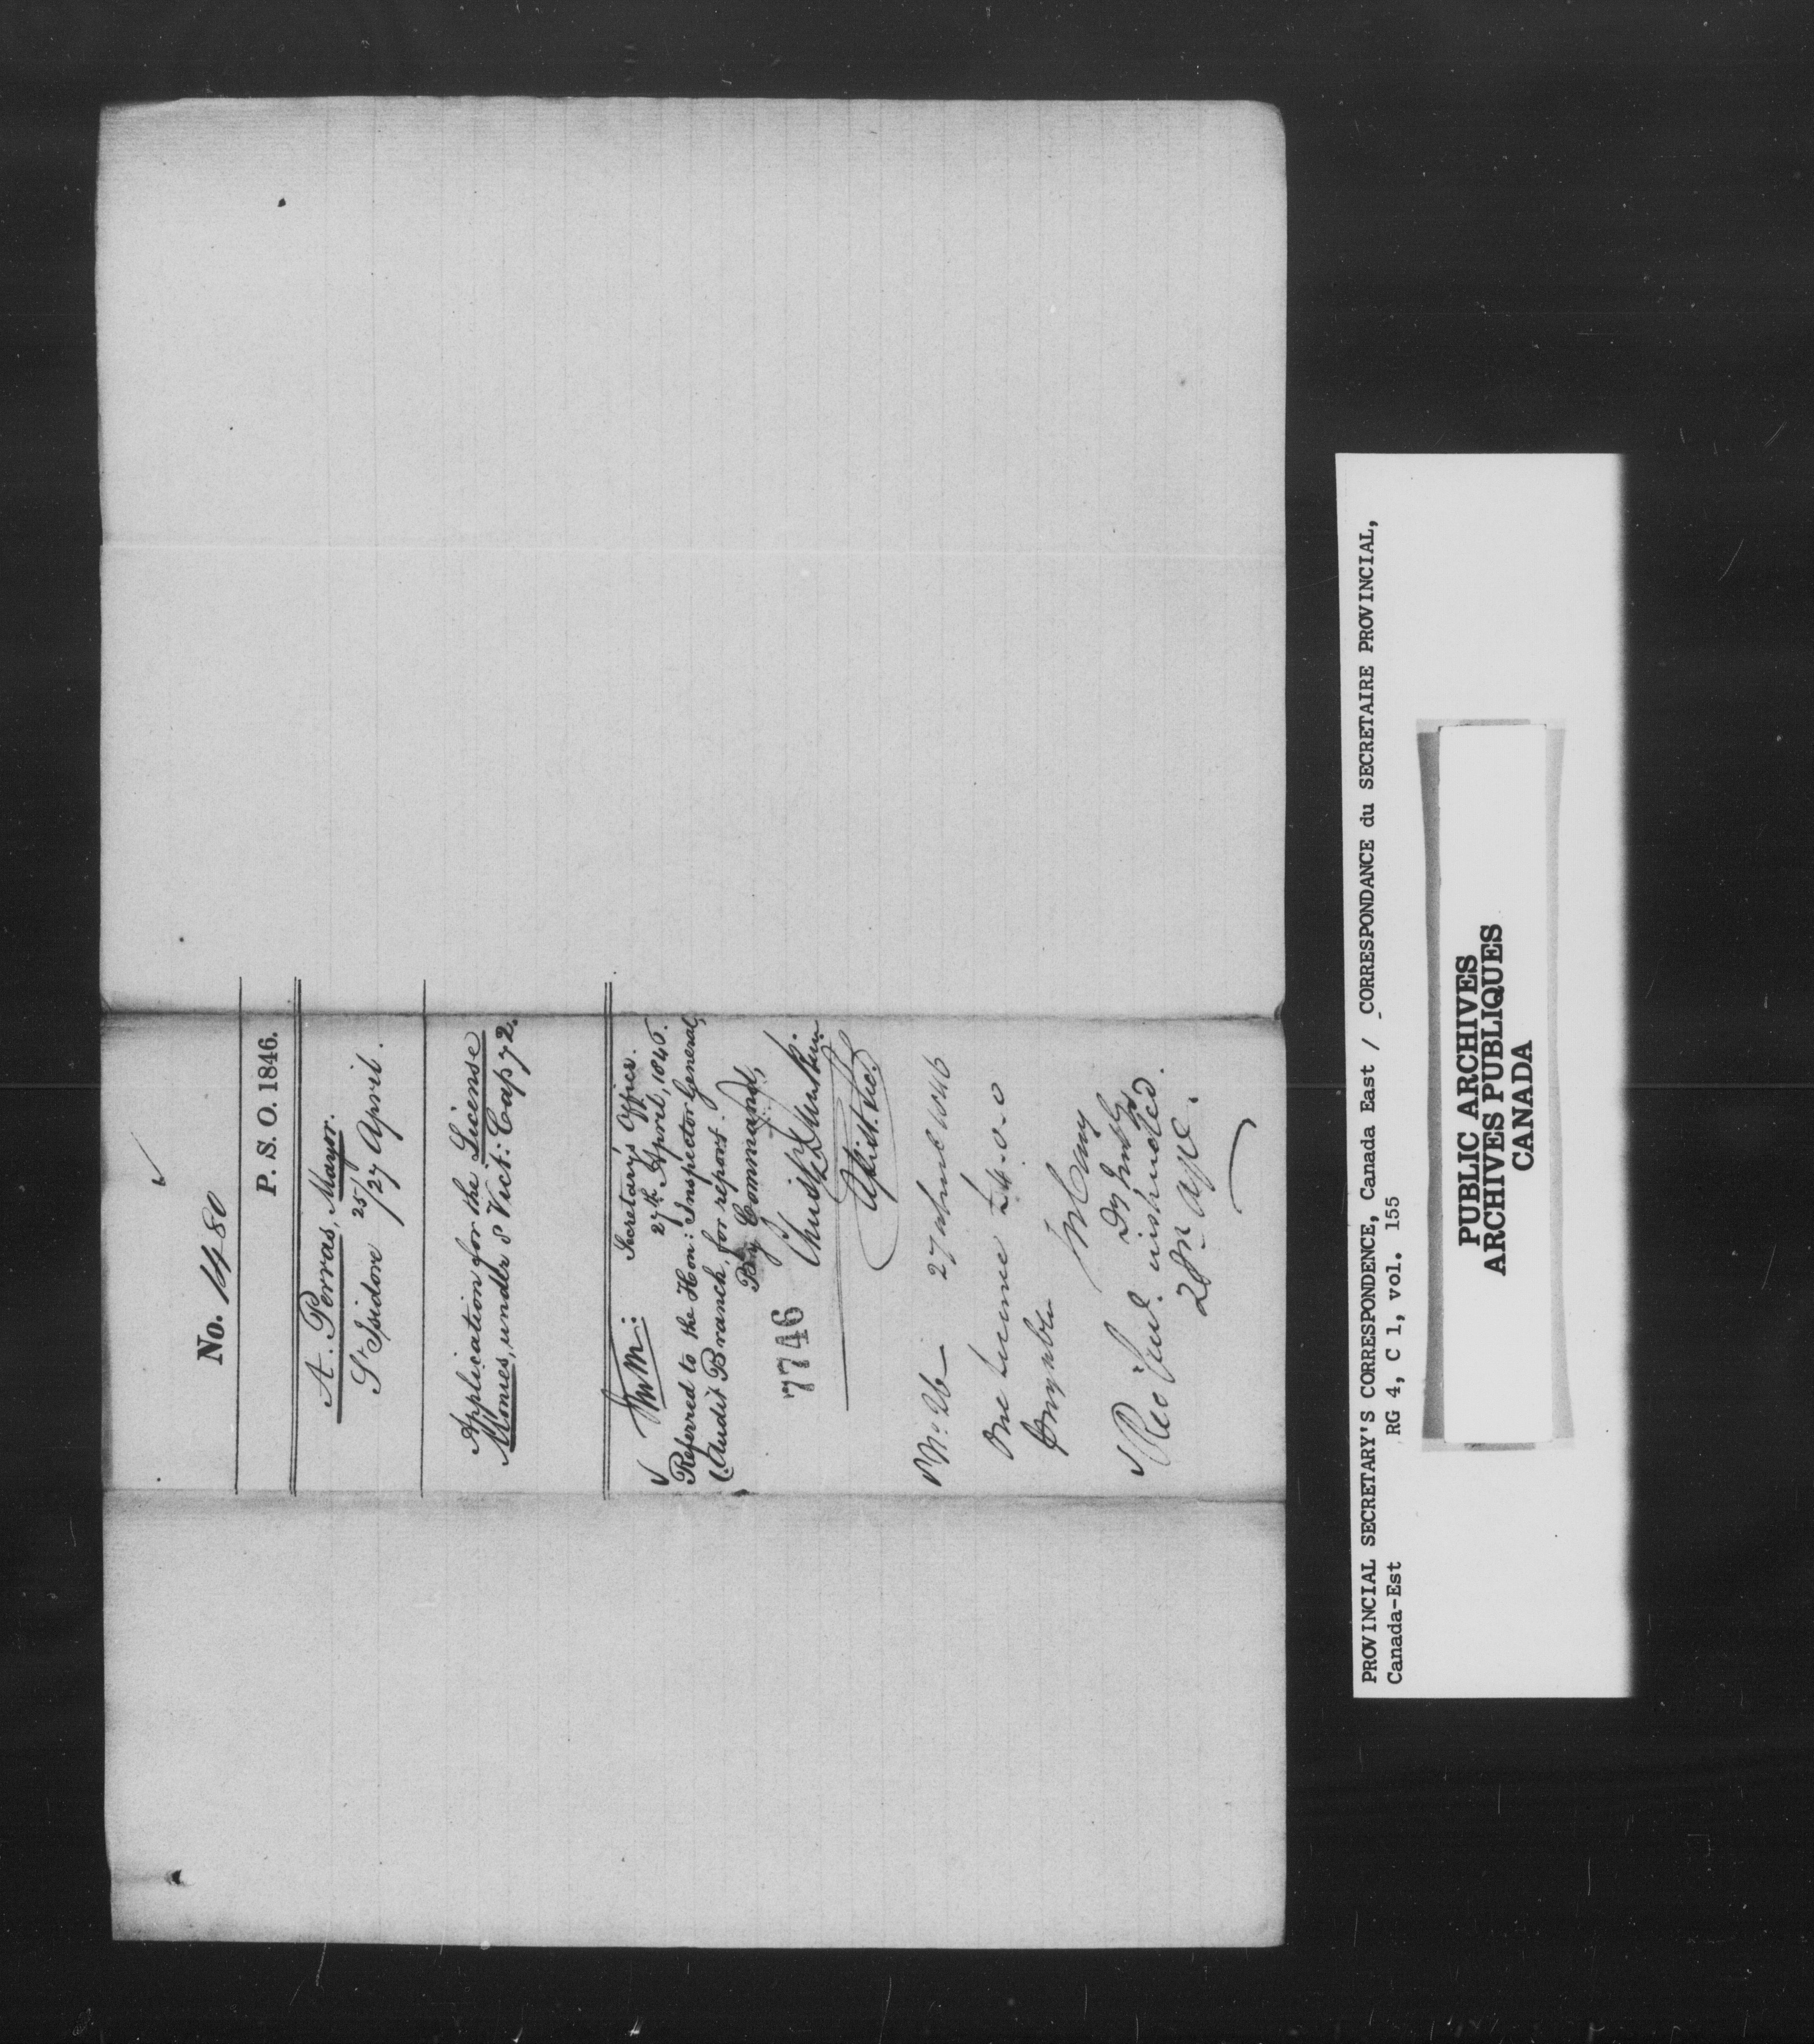 No. 1480
P. S. O. 1846.
A. Perras, Mayor.
St Isidore 25/27 April.
Application for the License
Monies, under 8 Vict: Cap 72.
Secretary's Office.
27th April, 1846.
Referred to the Hon: Inspector General,
(Audit Branch, for report.
By Command,
Christ. Dunkin
Assist. Sec.
7746
No. 26 27 April 1846
One License £4.0.0
28th Apl.
PROVINCIAL SECRETARY'S CORRESPONDENCE, Canada East / CORRESPONDANCE du SECRETAIRE PROVINCIAL,
Canada-Est RG 4, C 1, vol. 155
PUBLIC ARCHIVES
ARCHIVES PUBLIQUES
CANADA